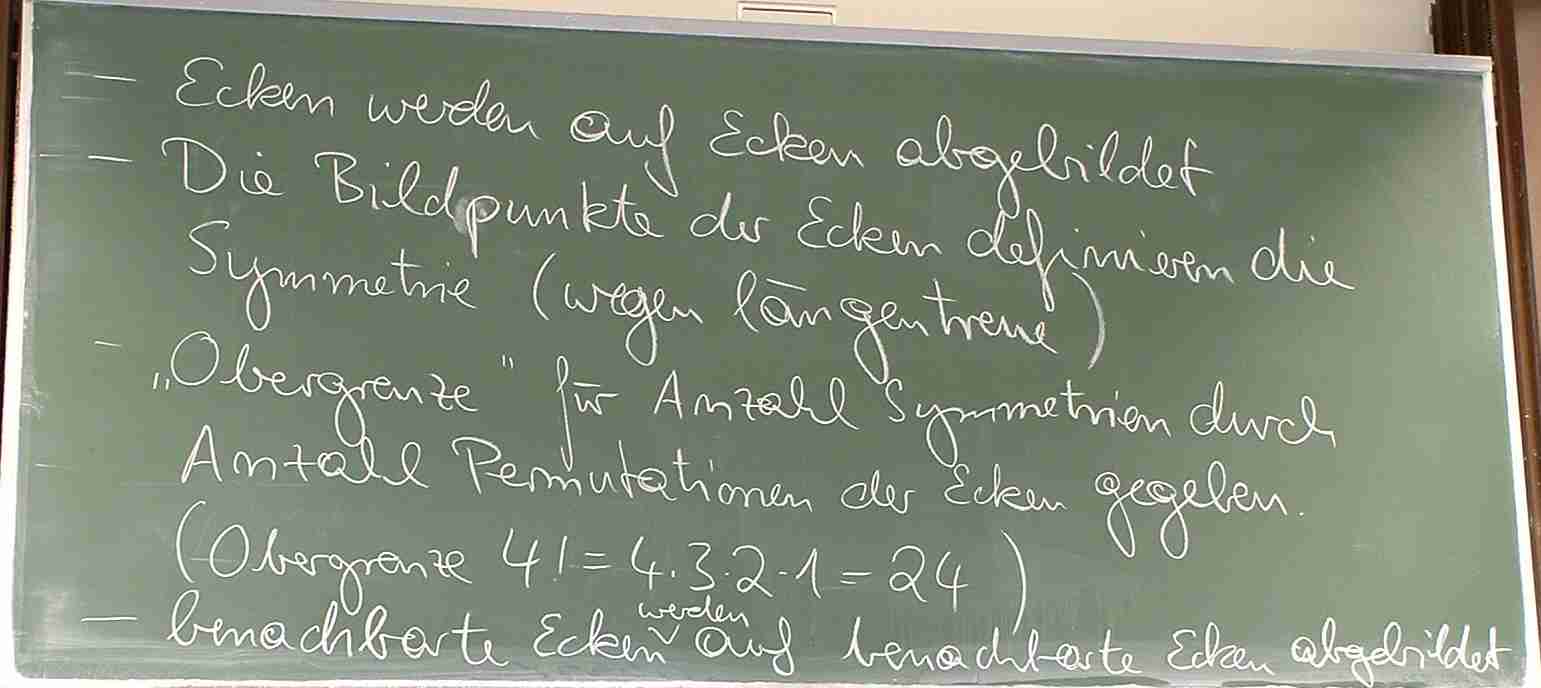 — Ecken werden auf Ecken abgebildet
— Die Bildpunkte der Ecken definieren die
Symmetrie (wegen längentreue)
- „Obergrenze" für Anzahl Symmetrien durch
Anzahl Permutationen der Ecken gegeben.
(Obergrenze 4! = 4·3·2·1 = 24)
— benachbarte Ecken werden auf benachbarte Ecken abgebildet